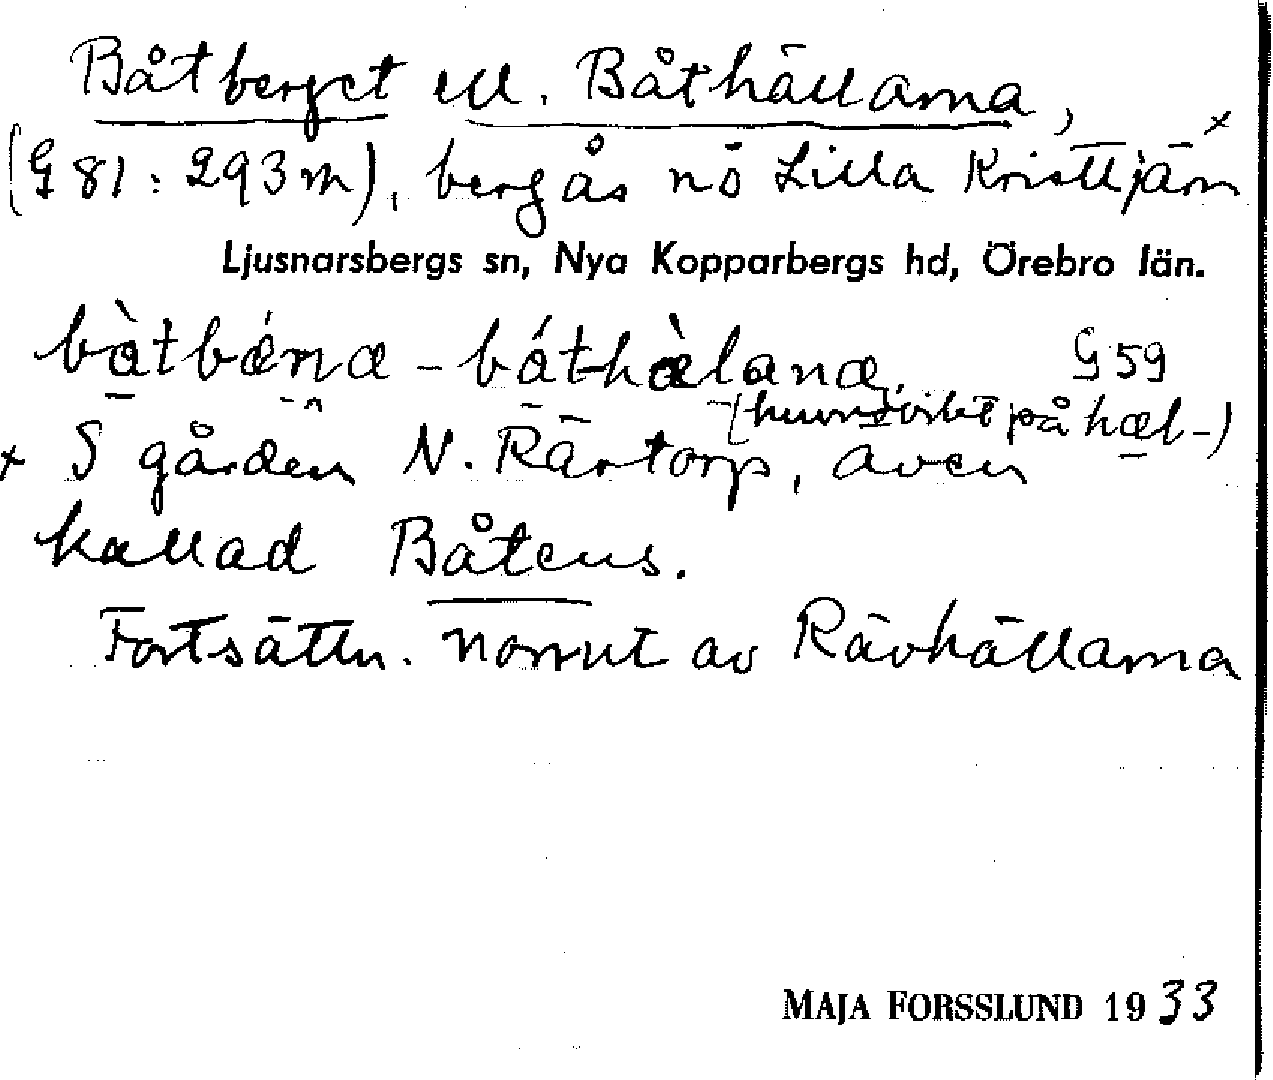 Båtberget ell. Båthällarna, x
(G 81: 293 m), bergås nö Lilla Kristtjärn
Ljusnarsbergs sn, Nya Kopparbergs hd, Örebro län.
bàtbǽrnæ - báthæ̀lanæ, G 59
(huvudvikt på hæl-)
x S gården N. Rärtorp, även
kallad Båtens.
Fortsättn. norrut av Rävhällarna
MAJA FORSSLUND 1933